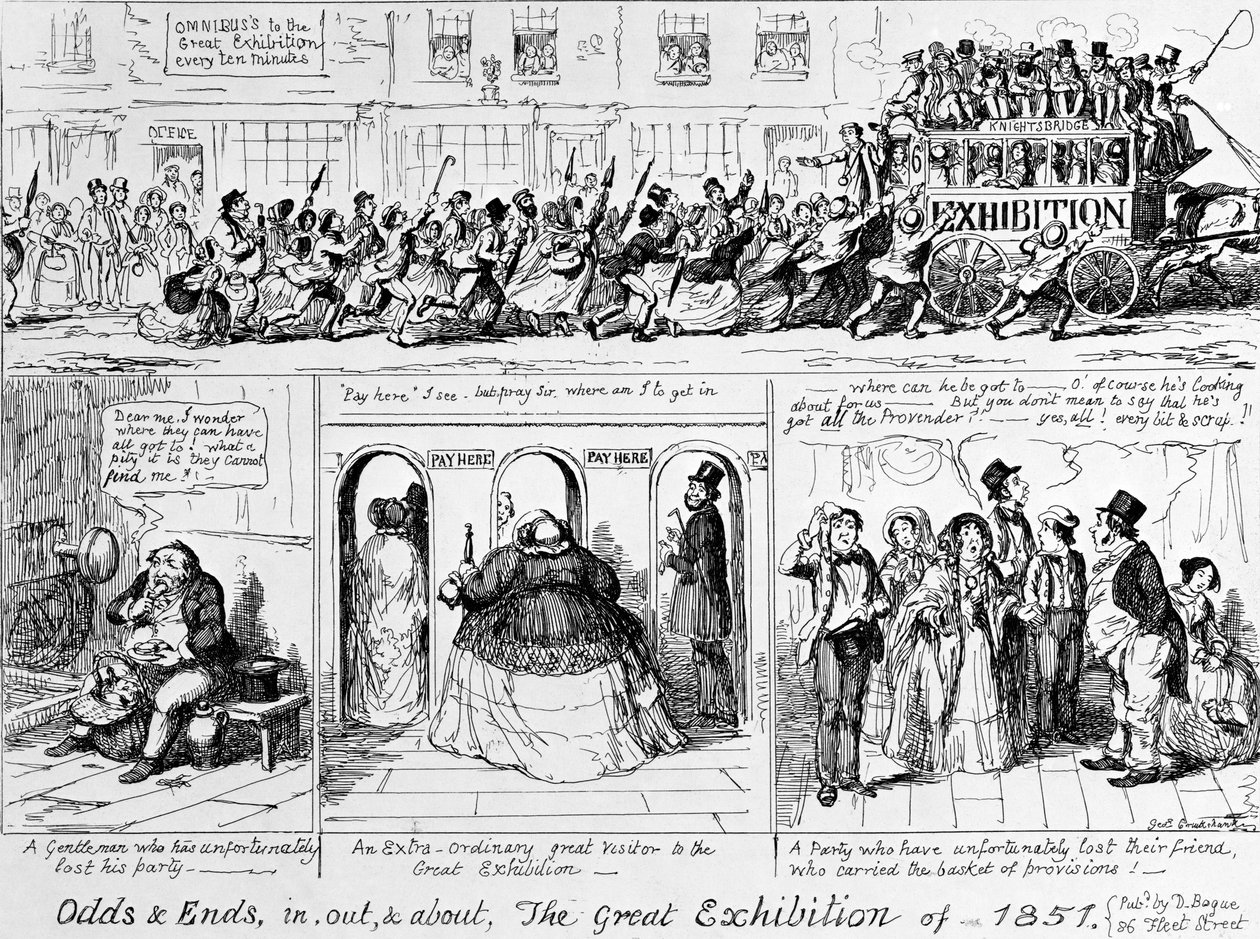 OMNIBUS's to the
Great Exhibition
every ten minutes
OFFICE
KNIGHTSBRIDGE
6
EXHIBITION
Dear me, I wonder
where they can have
all got to! what a
pity it is they cannot
find me !! -
"Pay here" I see - but pray Sir, where am I to get in
PAY HERE
PAY HERE
PA
— where can he be got to — O! of course he's looking
about for us — But you don't mean to say that he's
got all the Provender?!" — yes, all! every bit & scrap!!
Geo. Cruikshank
A Gentleman who has unfortunately
lost his party —
An Extra-ordinary great visitor to the
Great Exhibition —
A Party who have unfortunately lost their friend,
who carried the basket of provisions! —
Odds & Ends, in, out, & about, The Great Exhibition of 1851.
Pubd. by D. Bogue
86 Fleet Street